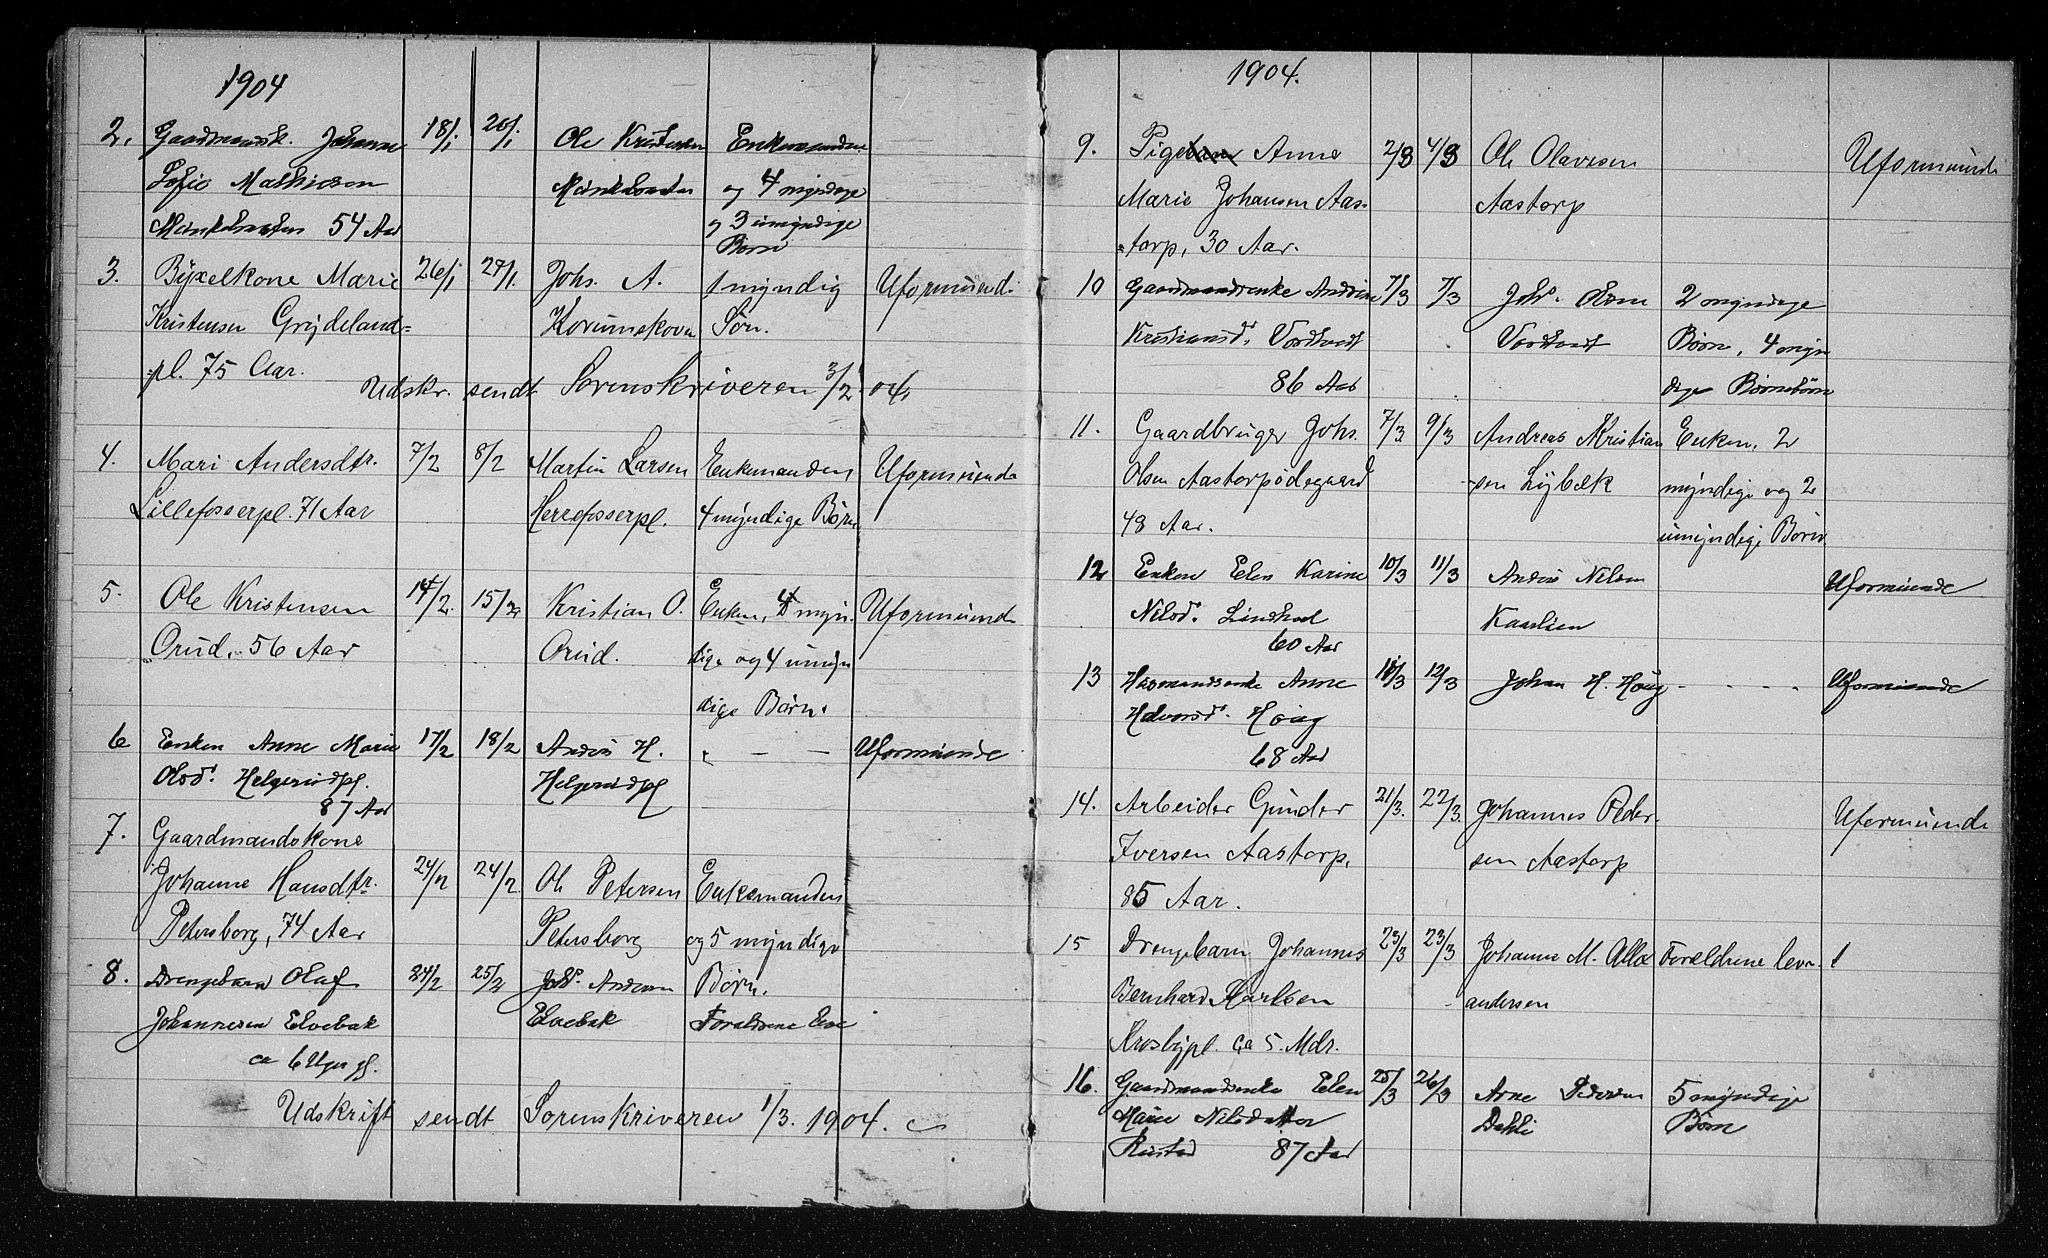 1904
2. Gaardmandsk. Johanne 18/1. 20/1 Ole Kristensen Enkemanden
Sofie Mathiesen og 4 myndige
54 Aar og 3 umyndige
Børn
3. Byxelkone Marie 26/1 27/1. Johs. A. 1 myndig Uformuende
Kristensen Grydeland- Korumskoven Søn.
pl. 75 Aar.
Udskr. sendt Sorenskriveren 3/2. 04.
4. Mari Andersdtr. 7/2 8/2 Martin Larsen Enkemanden Uformuende
Lillefosserpl. 71 Aar Herrefosserpl. 4 myndige Børn
5. Ole Kristensen 14/2. 15/2. Kristian O. Enken, 4 myn- Uformuende
Orud. 56 Aar Orud. dige og 4 umyn
dige Børn.
6 Enken Anne Marie 17/2 18/2 Andrs H. " — — Uformuende
Olsdr. Helgerudpl. Helgerudpl
87 Aar
7. Gaardmandskone
Johanne Hansdtr. 24/2 24/2. Ole Petersen Enkemanden
Petersborg, 74 Aar Petersborg og 5 myndige
8. Drengebarn Olaf 24/2 25/2 Johs. Andersen Børn.
Johannesen Elvebak Elvebak Forældrene leve
ca 6 Uger gl.
Udskrift sendt Sorenskriveren 1/3. 1904.
1904.
9. Pige Anne 2/3 4/3 Ole Olavesen Uformuende
Marie Johansen Aas- Aastorp
torp, 30 Aar.
10 Gaardmandsenke Andrine 7/3 7/3 Johs. Olsen 2 myndige
Kristiansdr. Børn, 4 myn
86 Aar dige Børnebørn
11. Gaardbruger Johs. 7/3 9/3 Andreas Kristian Enken, 2
Olsen Aastorpødegaard sen Lybæk myndige og 2
48 Aar. umyndige Børn.
12 Enken Elen Karine 10/3 11/3 Andrs Nilsen Uformuende
Nilsdr. Lindhol
60 Aar
13 Husmandsenke Anne 10/3 12/3 Johan H. Houg - - - - Uformuende
Halvorsdr. Houg
68 Aar
14. Arbeider Gunder 21/3. 22/3. Johannes Peder- Uformuende
Iversen Aastorp, sen Aastorp
85 Aar.
15 Drengebarn Johannes 23/3 23/3 Johanne M. Alex Forældrene leve
Bernhard Karlsen andersen
Krosbypl. ca 5. Mdr.
16. Gaardmandsenke Elen 25/3 26/3 Arne Pedersen 5 myndige
Marie Nilsdatter Dahli Børn
Rustad 87 Aar